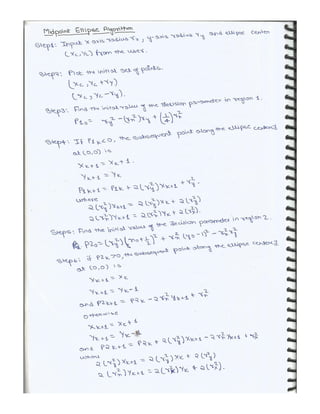 Midpoint Ellipse Algorithm
Step1: Input x axis radius rx, y-axis radius ry and ellipse center
(xc,yc) from the user.
Step2: Plot the initial set of points.
(xc, yc+ry)
(xc, yc-ry).
Step3: Find the initial value of the decision parameter in region 1.
P10 = ry² - (rx²)ry + (1/4)rx²
Step4: If P1k<0, the subsequent point along the ellipse centered
at (0,0) is
xk+1 = xk+1.
yk+1 = yk
P1k+1 = P1k + 2(ry²)xk+1 + ry².
where
2(ry²)xk+1 = 2(ry²)xk + 2(ry²)
2(rx²)yk+1 = 2(rx²)yk + 2(rx²).
Step5: Find the initial value of the decision parameter in region 2.
P20 = (ry²)(x0+1/2)² + rx²(y0-1)² - rx²ry²
Step6: if P2k>0, the subsequent point along the ellipse centered
at (0,0) is
xk+1 = xk
yk+1 = yk-1
and P2k+1 = P2k - 2rx²yk+1 + rx²
otherwise
xk+1 = xk+1
yk+1 = yk-1
and P2k+1 = P2k + 2(ry²)xk+1 - 2rx²yk+1 + rx²
where
2(ry²)xk+1 = 2(ry²)xk + 2(ry²)
2(rx²)yk+1 = 2(rx²)yk + 2(rx²).